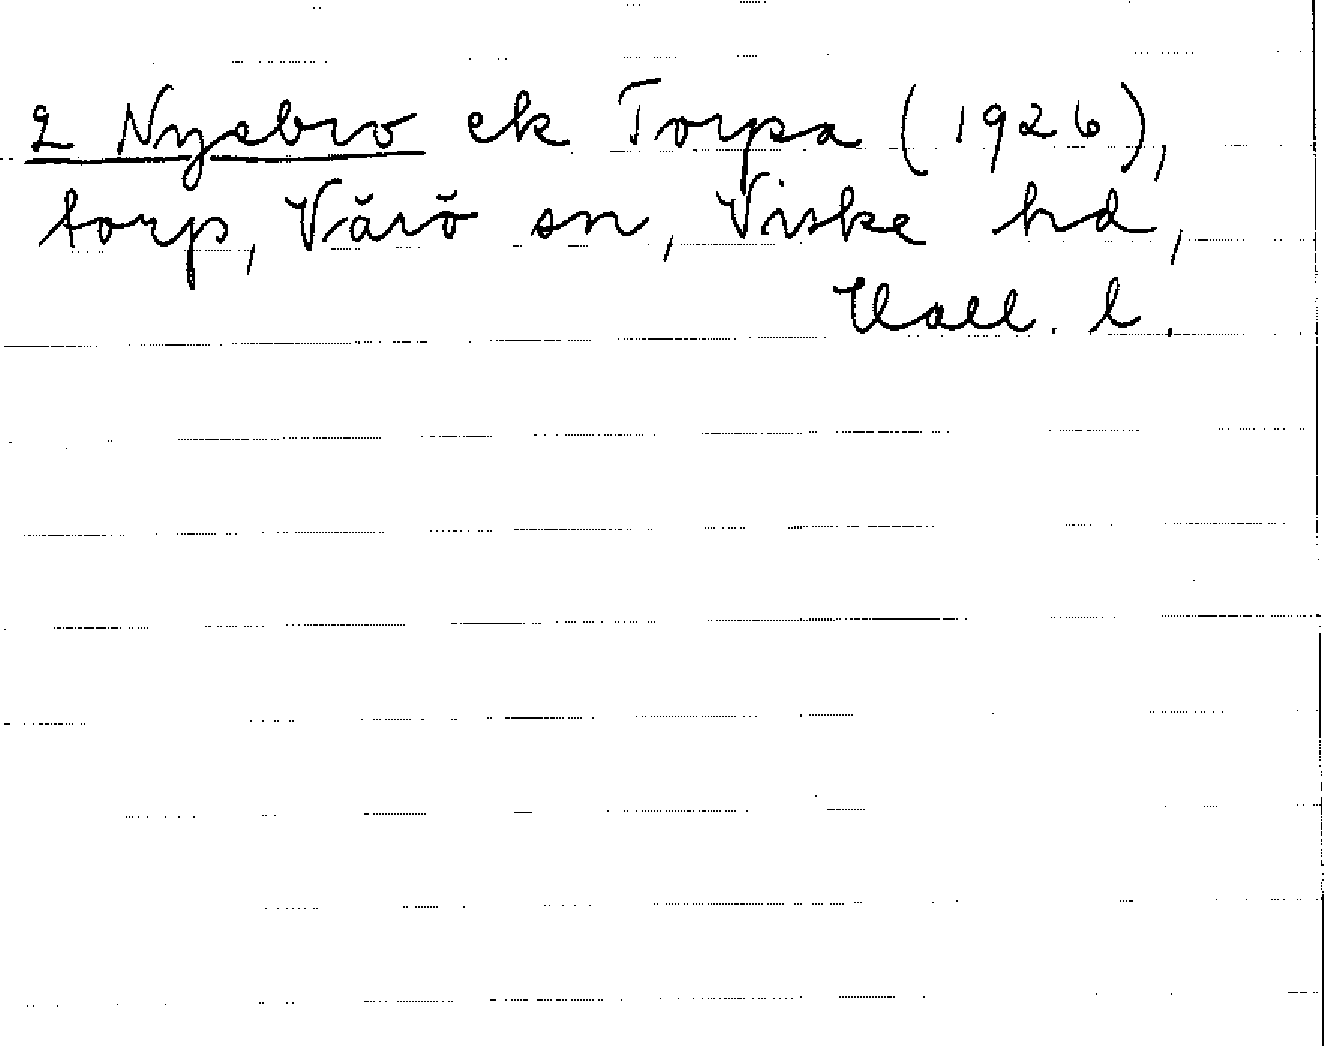 2 Nyebro ek Torpa (1926),
torp, Värö sn, Viske hd,
Hall. l.